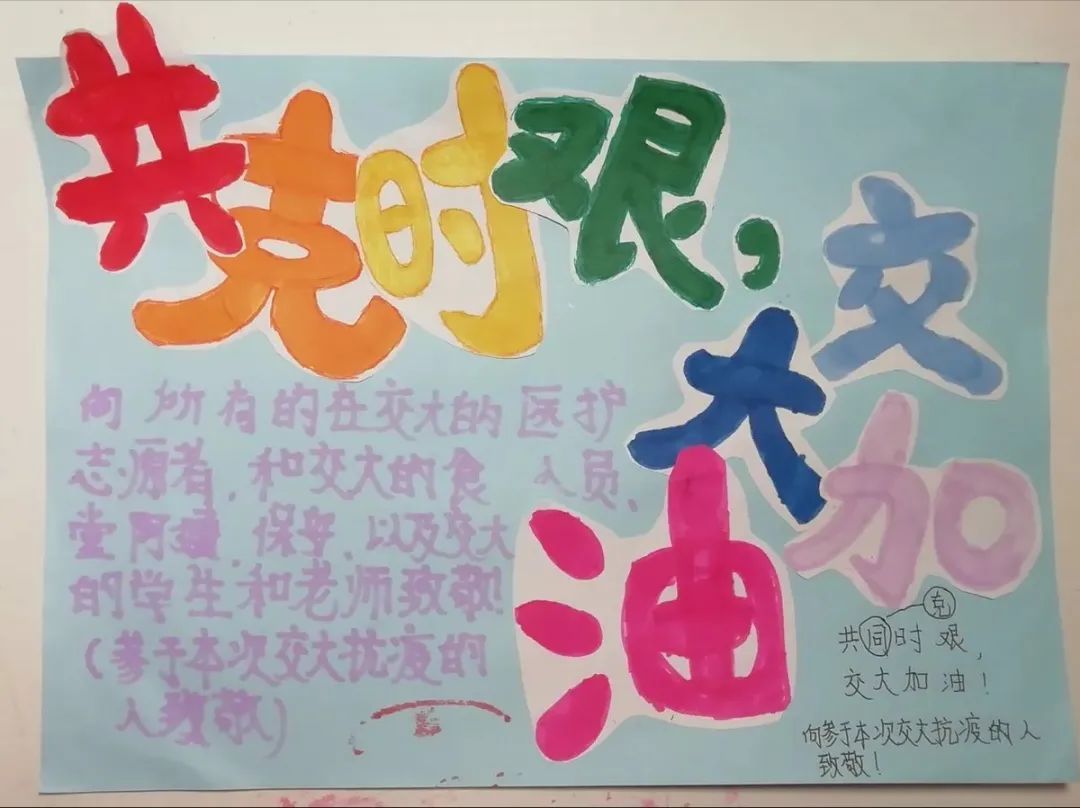 共克时艰,
交大
加油
向所有的在交大的医护
志愿者,和交大的食 人员,
堂阿姨,保安,以及交大
的学生和老师致敬!
(参于本次交大抗疫的
人致敬)
克
共同时艰,
交大加油!
向参于本次交大抗疫的人
致敬!